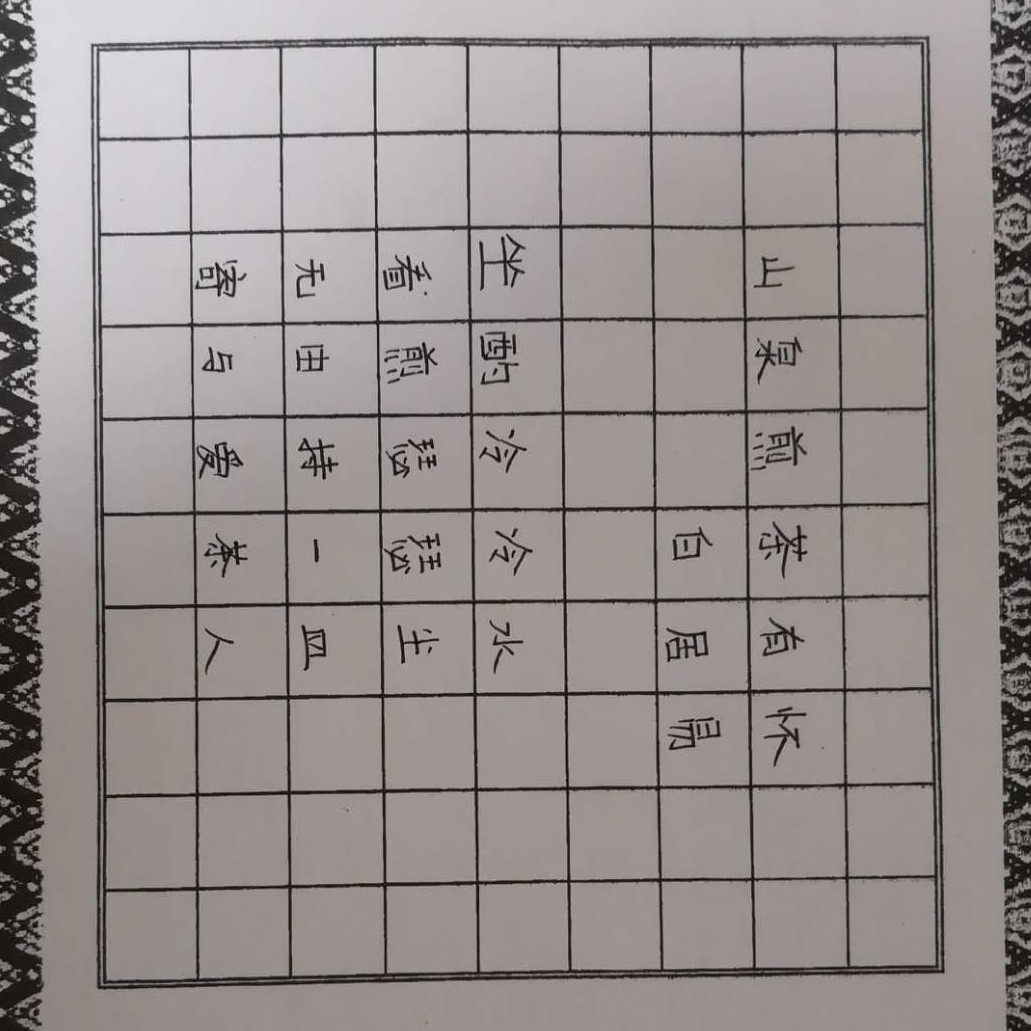 山泉煎茶有怀
白居易
坐酌冷冷水
看煎瑟瑟尘
无由持一皿
寄与爱茶人